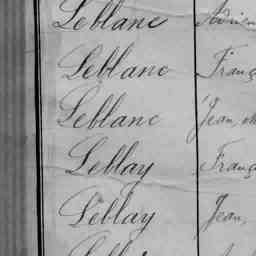 Leblanc Adrien
Leblanc Franç
Leblanc Jean,
Leblay Franç
Leblay Jean,